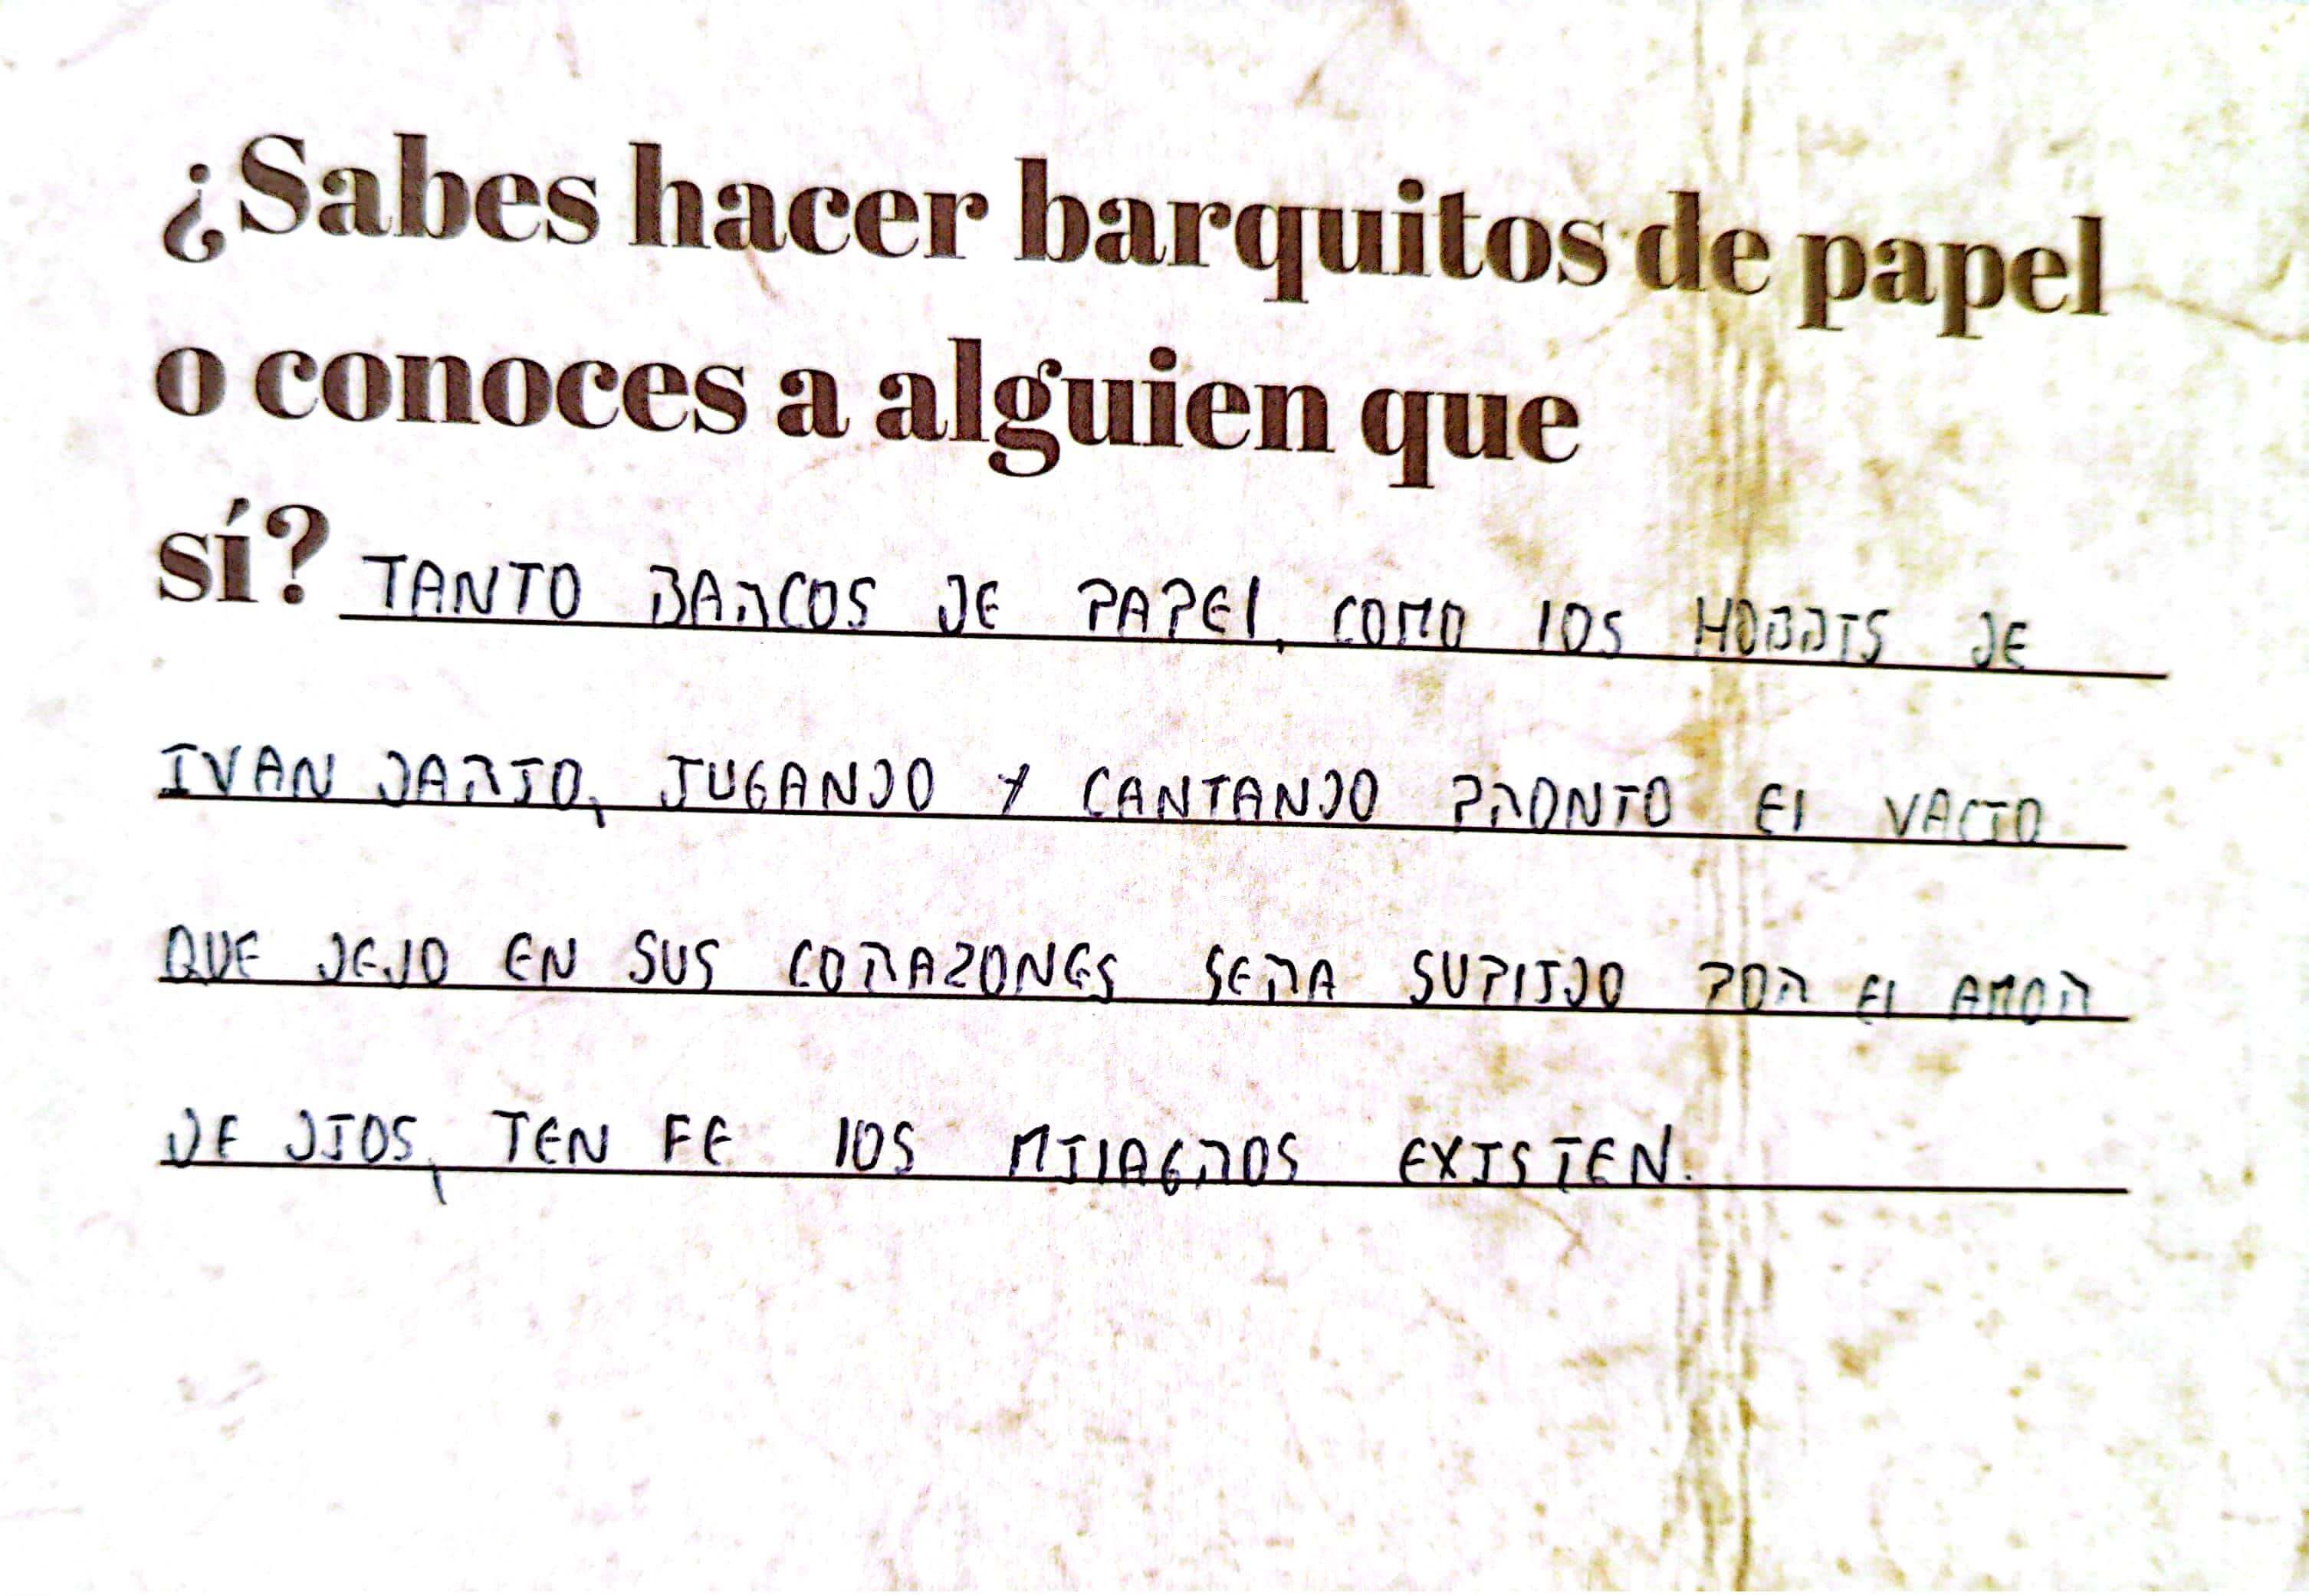 ¿Sabes hacer barquitos de papel
o conoces a alguien que
sí? TANTO BARCOS DE PAPEL, COMO LOS HOBBIS DE
IVAN DARIO, JUGANDO Y CANTANDO PRONTO EL VACIO
QUE DEJO EN SUS CORAZONES SERA SUPLIDO POR EL AMOR
DE DIOS, TEN FE LOS MILAGROS EXISTEN.